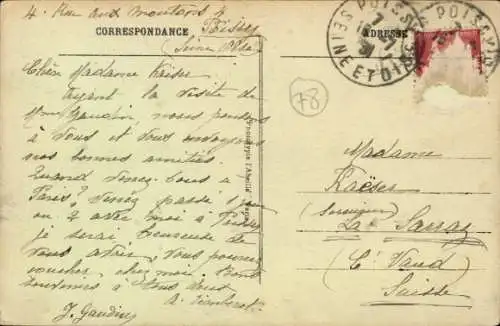 4 Rue aux Moutons 4
Poissy
(Seine Oise)
CORRESPONDANCE
ADRESSE
POISSY
SEINE ET OISE
78
Chère Madame Kaëser
Ayant la visite de
Mme Gaudin, nous pensons
à vous et vous envoyons
nos bonnes amitiés.
Quand venez-vous à
Paris? Venez passé 1 jour
ou 2 avec moi à Poissy
je serai heureuse de
vous avoir, vous pouvez
coucher chez moi. Bons
souvenirs à tous deux
J. Gaudin
Phototypie l'Abeille, Paris
Madame
Kaëser
La Sarraz
(Ct Vaud)
Suisse